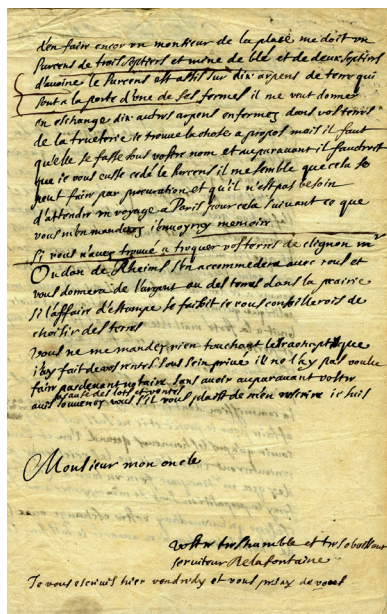 d'en faire encor un monsieur de la place me doit un
surcens de trois septiers et mine de blé et de deux septiers
d'avoine le surcens est assis sur dix arpens de terre qui
sont a la porte d'une de ses fermes il me veut donner
en eschange dix autres arpens enfermez dans vos terres
de la trueterie je trouve la chose a propos mais il faut
qu'elle se fasse sous vostre nom et auparavant il faudroit
que je vous eusse cedé le surcens il me semble que cela se
peut faire par procuration et qu'il n'est pas besoin
d'attendre un voyage a Paris pour cela suivant ce que
vous m'en manderez j'envoyray memoire
si vous n'avez trouvé a troquer vos terres de clignon mr
Oudan de Rheims s'en accommodera avec vous et
vous donnera de l'argent ou des terres dans la prairie
si l'affaire d'estampe se faisoit je vous conseillerois de
choisir des terres
vous ne me mandez rien touchant le transport que
j'ay fait de vos rentes sous sein privé je ne l'ay pas voulu
faire pardevant notaire sans avoir auparavant vostre
a cause des lots et ventes
avis souvenez vous s'il vous plaist de m'en rescrire je suis
Monsieur mon oncle
vostre tres humble et tres obeissant
serviteur De la fontaine
Je vous escrivis hier vendredy et vous priay de